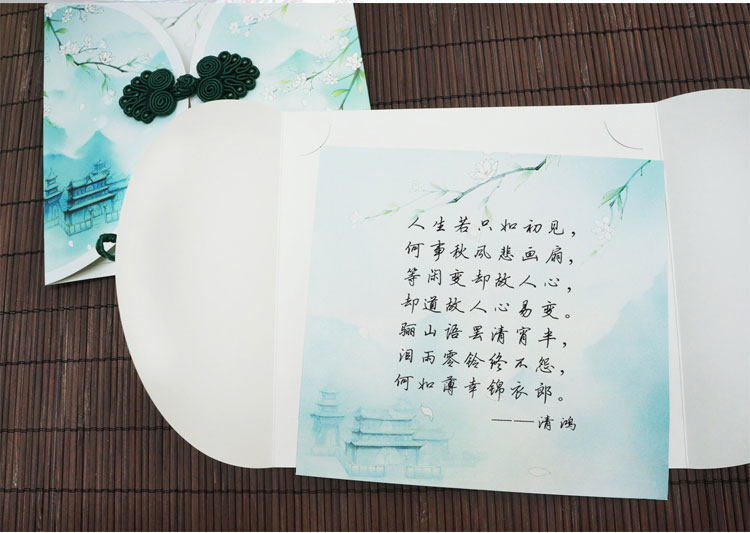 人生若只如初见，
何事秋风悲画扇，
等闲变却故人心，
却道故人心易变。
骊山语罢清宵半，
泪雨零铃终不怨，
何如薄幸锦衣郎。
——清鸿